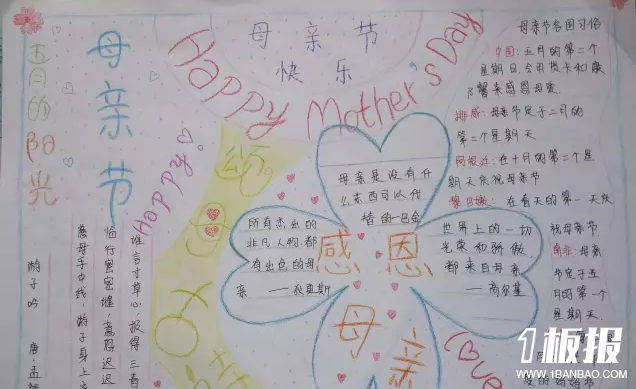 五月的阳光
母亲节
母亲节
快乐
Happy Mother's Day
Happy!
游子吟 唐·孟郊
慈母手中线 游子身上
临行密密缝,意恐迟迟
谁言寸草心,报得三春
颂
母亲是没有什
么东西可以代
替的
所有杰出的
非凡人物,都
有出色的母
亲 ——狄更斯
世界上的一切
光荣和骄傲,
都来自母亲
——高尔基
感恩
母亲
Love
母亲节各国习俗
中国:五月的第二个
星期日,会用贺卡和康
乃馨来感恩母爱
挪威:母亲节定于二月的
第二个星期天
阿根廷:在十月的第二个星
期天庆祝母亲节
黎巴嫩:在春天的第一天庆
祝母亲节
南非:母亲
节定于五
月的第一个
星期天
1板报
WWW.1BANBAO.COM